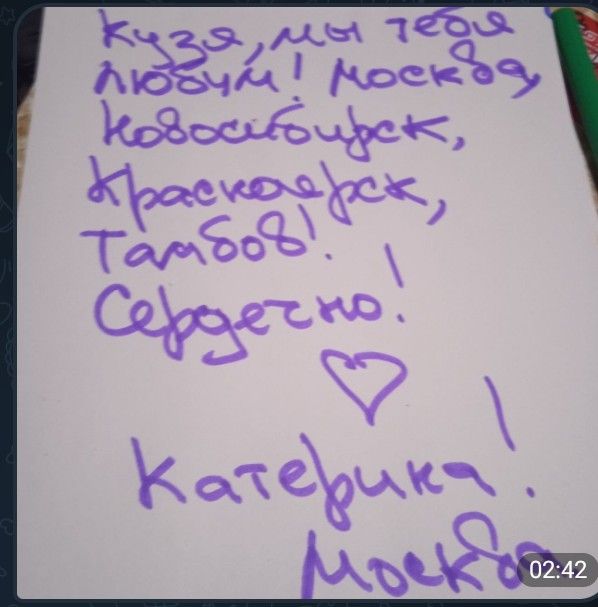 Кузя, мы тебя
любим! Москва,
Новосибирск,
Красноярск,
Тамбов!
Сердечно!
Катерина!
Москва
02:42